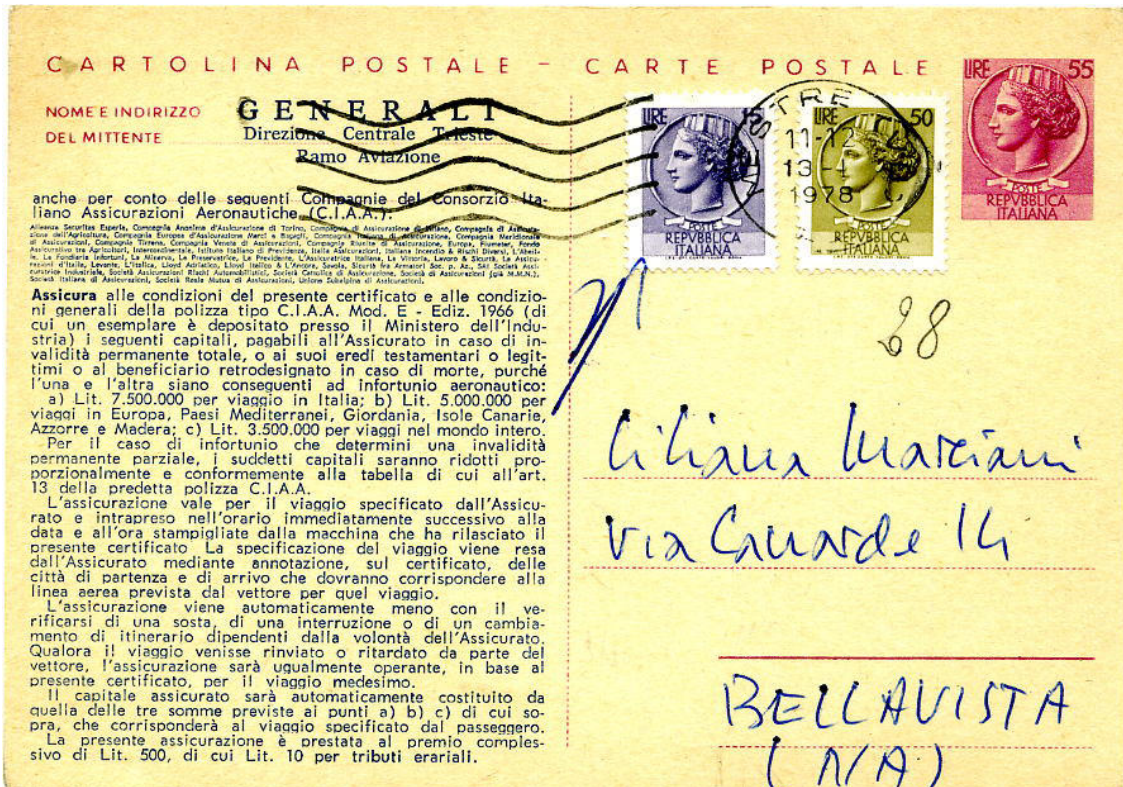 CARTOLINA POSTALE - CARTE POSTALE
NOME E INDIRIZZO
DEL MITTENTE
GENERALI
Direzione Centrale Trieste
Ramo Aviazione
LIRE
REPVBBLICA
ITALIANA
LIRE 50
REPVBBLICA
ITALIANA
LIRE 55
POSTE
REPVBBLICA
ITALIANA
MESTRE
11-12
13-
1978
anche per conto delle seguenti Compagnie del Consorzio Ita-
liano Assicurazioni Aeronautiche (C.I.A.A.):
Assicura alle condizioni del presente certificato e alle condizio-
ni generali della polizza tipo C.I.A.A. Mod. E - Ediz. 1966 (di
cui un esemplare è depositato presso il Ministero dell'Indu-
stria) i seguenti capitali, pagabili all'Assicurato in caso di in-
validità permanente totale, o ai suoi eredi testamentari o legit-
timi o al beneficiario retrodesignato in caso di morte, purché
l'una e l'altra siano conseguenti ad infortunio aeronautico:
a) Lit. 7.500.000 per viaggio in Italia; b) Lit. 5.000.000 per
viaggi in Europa, Paesi Mediterranei, Giordania, Isole Canarie,
Azzorre e Madera; c) Lit. 3.500.000 per viaggi nel mondo intero.
Per il caso di infortunio che determini una invalidità
permanente parziale, i suddetti capitali saranno ridotti pro-
porzionalmente e conformemente alla tabella di cui all'art.
13 della predetta polizza C.I.A.A.
L'assicurazione vale per il viaggio specificato dall'Assicu-
rato e intrapreso nell'orario immediatamente successivo alla
data e all'ora stampigliate dalla macchina che ha rilasciato il
presente certificato La specificazione del viaggio viene resa
dall'Assicurato mediante annotazione, sul certificato, delle
città di partenza e di arrivo che dovranno corrispondere alla
linea aerea prevista dal vettore per quel viaggio.
L'assicurazione viene automaticamente meno con il ve-
rificarsi di una sosta, di una interruzione o di un cambia-
mento di itinerario dipendenti dalla volontà dell'Assicurato.
Qualora il viaggio venisse rinviato o ritardato da parte del
vettore, l'assicurazione sarà ugualmente operante, in base al
presente certificato, per il viaggio medesimo.
Il capitale assicurato sarà automaticamente costituito da
quella delle tre somme previste ai punti a) b) c) di cui so-
pra, che corrisponderà al viaggio specificato dal passeggero.
La presente assicurazione è prestata al premio comples-
sivo di Lit. 500, di cui Lit. 10 per tributi erariali.
28
Liliana Marciani
Via
BELLAVISTA
(NA)